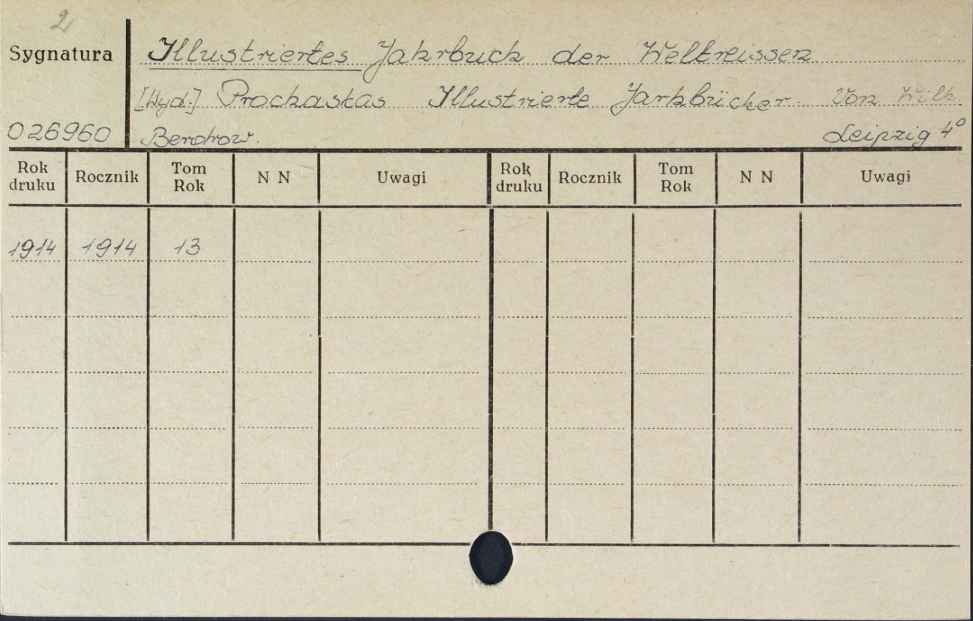 2
Sygnatura
Illustriertes Jahrbuch der Weltreissen
[Wyd.] Prochaskas Illustrierte Jarhbücher Von Wilh.
026960 Berdrow. Leipzig 4°
Rok druku Rocznik Tom Rok N N Uwagi Rok druku Rocznik Tom Rok N N Uwagi
1914 1914 13